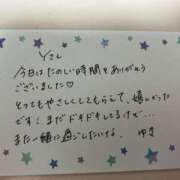 Yさん
今日はたのしい時間をありがとう
ございました♡
とってもやさしくしてもらえて、嬉しかった
です！まだドキドキしてるけど…
また一緒に過ごしたいな。 ゆき